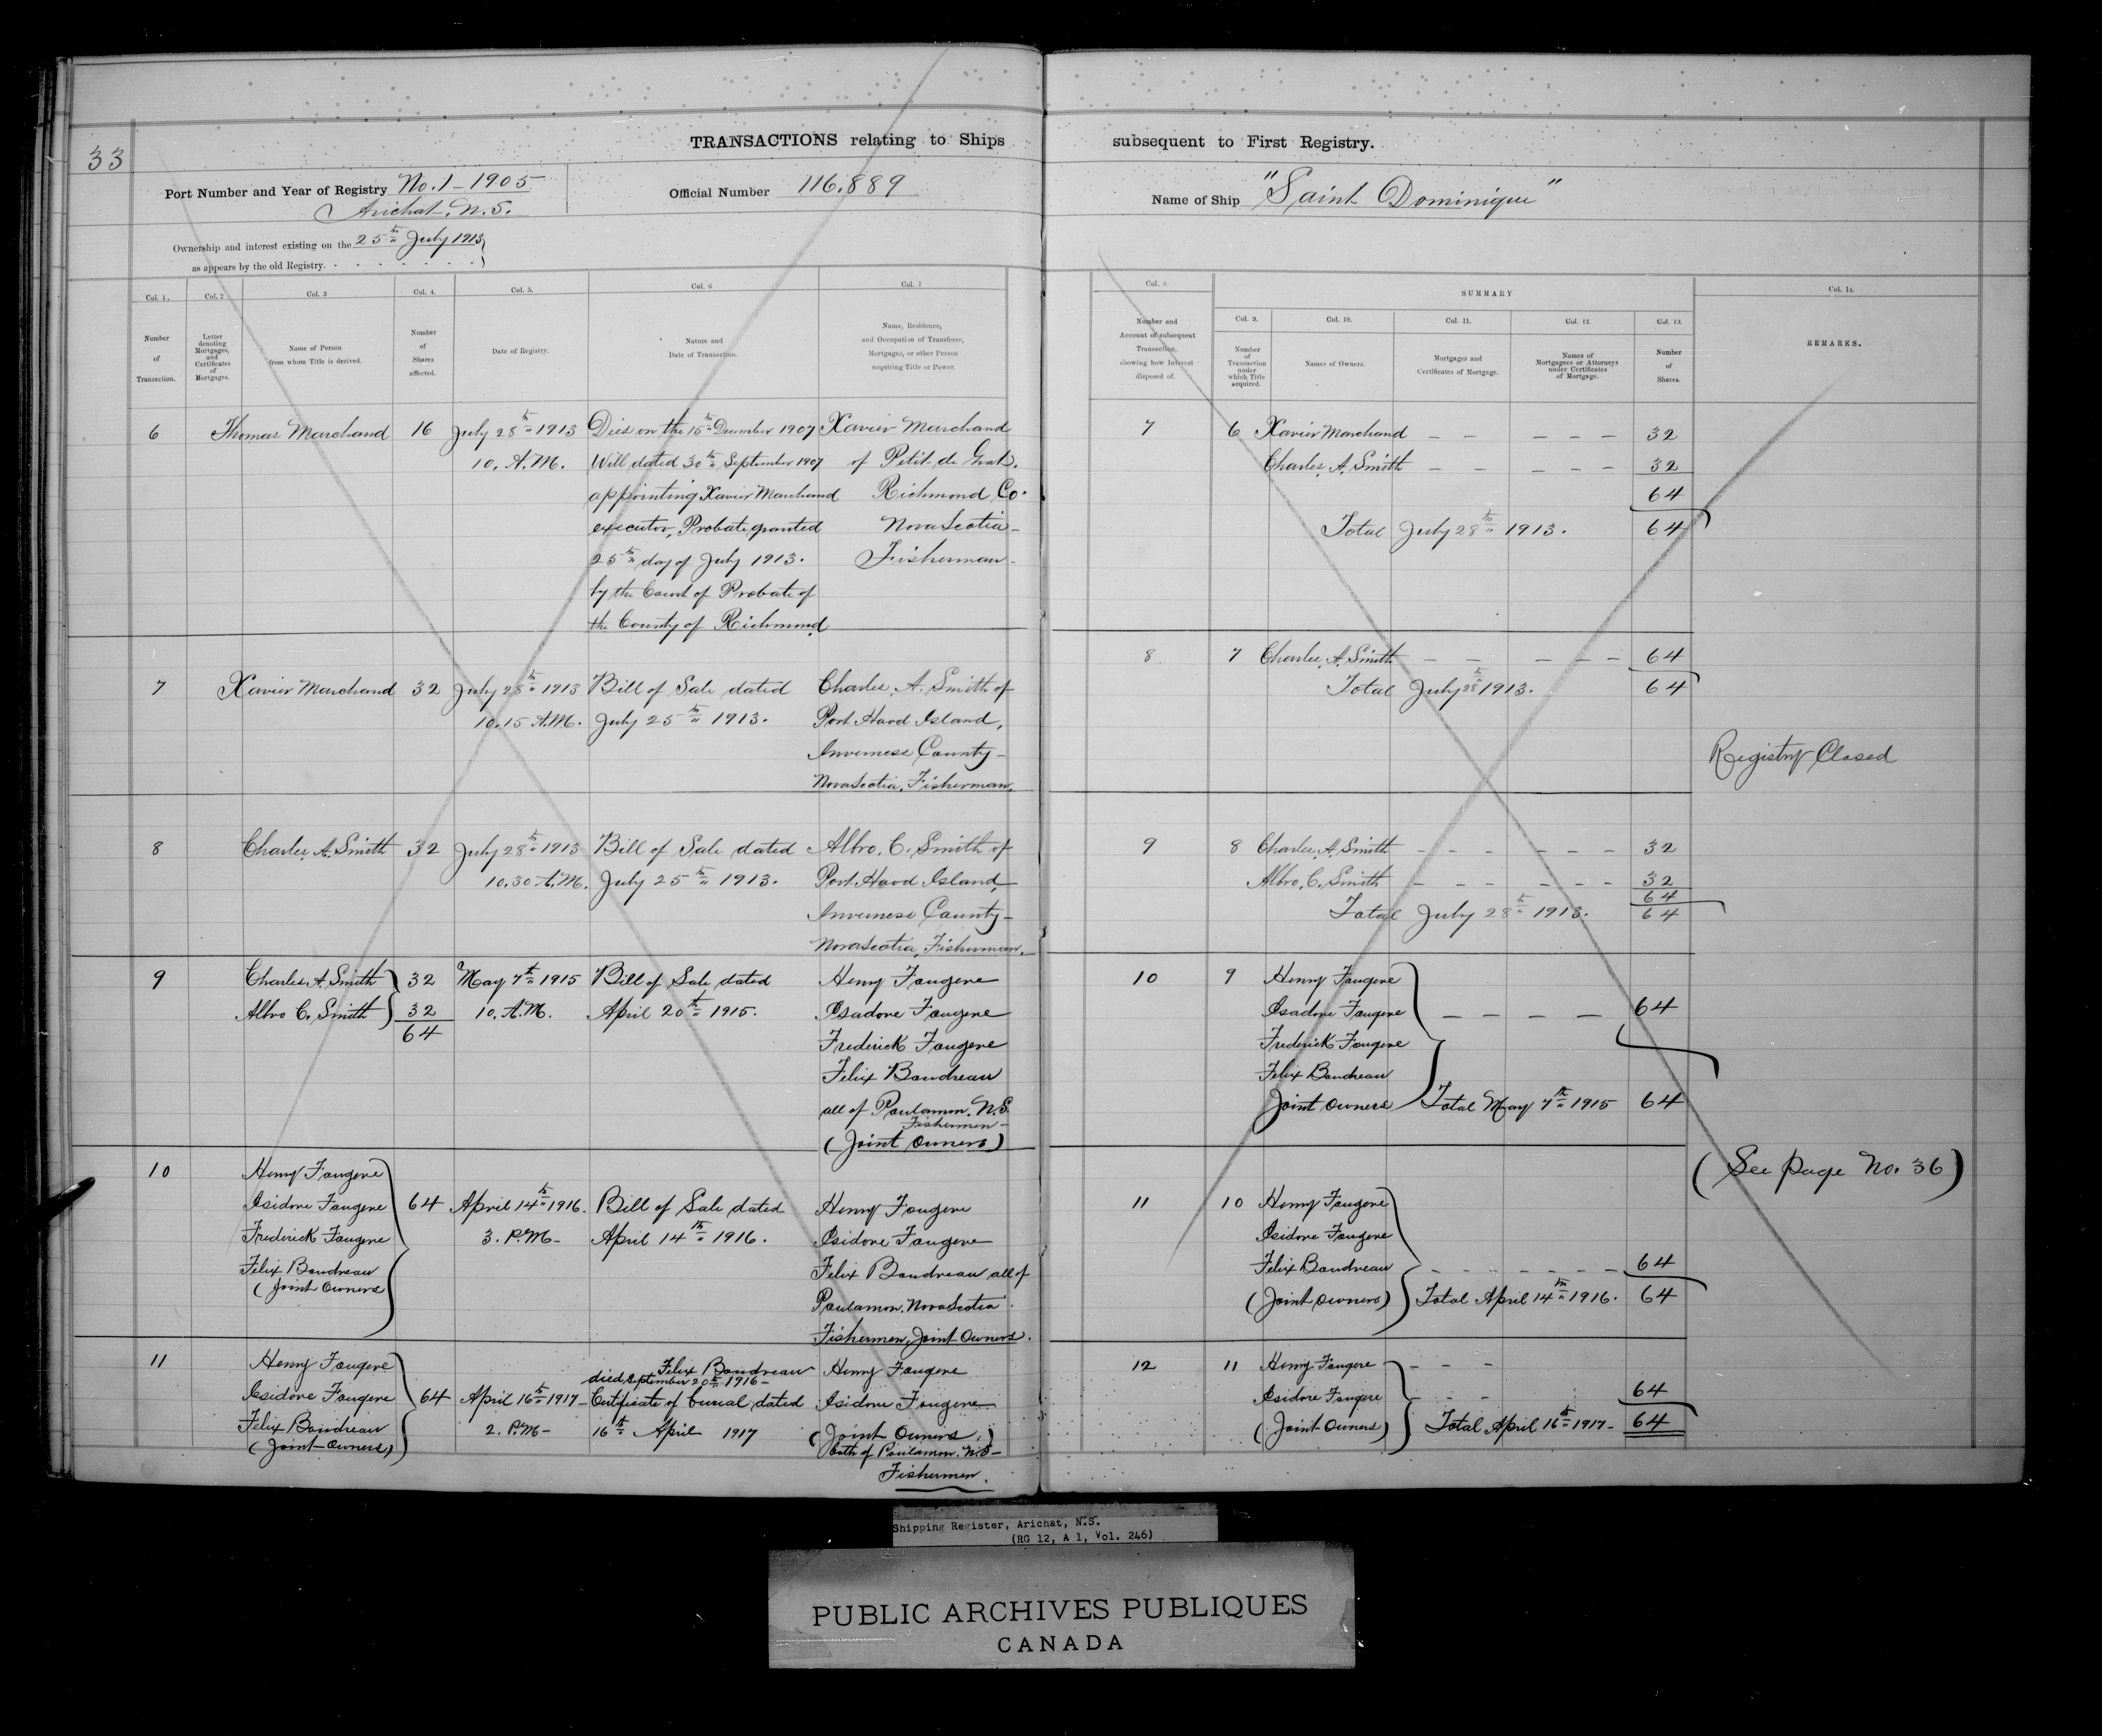 33
TRANSACTIONS relating to Ships subsequent to First Registry.
Port Number and Year of Registry No. 1 - 1905
Arichat, N.S.
Official Number 116.889
Name of Ship "Saint Dominique"
Ownership and interest existing on the 25th July 1913
as appears by the old Registry.
Col. 1.
Number
of
Transaction.
Col. 2
Letter
denoting
Mortgages,
and
Certificates
of
Mortgages.
Col. 3
Name of Person
from whom Title is derived.
Col. 4.
Number
of
Shares
affected.
Col. 5.
Date of Registry.
Col. 6
Nature and
Date of Transaction.
Col. 7
Name, Residence,
and Occupation of Transferee,
Mortgagee, or other Person
acquiring Title or Power.
Col. 8.
Number and
Account of subsequent
Transaction,
showing how Interest
disposed of.
SUMMARY
Col. 9.
Number
of
Transaction
under
which Title
acquired.
Col. 10.
Names of Owners.
Col. 11.
Mortgages and
Certificates of Mortgage.
Col. 12.
Names of
Mortgagees or Attorneys
under Certificates
of Mortgage.
Col. 13.
Number
of
Shares.
Col. 14.
REMARKS.
6 Thomas Marchand 16 July 28th 1913 Died on the 15th December 1907 Xavier Marchand
10. A.M. Will dated 30th September 1907 of Petit de Grat.
appointing Xavier Marchand Richmond Co.
executor, Probate granted Nova Scotia -
25th day of July 1913. Fisherman -
by the Court of Probate of
the County of Richmond
7 6 Xavier Marchand - - - - - 32
Charles A. Smith - - - - - 32
64
Total July 28th 1913. 64
7 Xavier Marchand 32 July 28th 1913 Bill of Sale dated Charles. A. Smith of
10.15 A.M. July 25th 1913. Port Hood Island,
Inverness County -
Nova Scotia, Fisherman.
8 7 Charles. A. Smith - - - - - 64
Total July 28th 1913. 64
Registry Closed
8 Charles. A. Smith 32 July 28th 1913 Bill of Sale dated Albro. C. Smith of
10.30 A.M. July 25th 1913. Port Hood Island,
Inverness County -
Nova Scotia, Fisherman.
9 8 Charles. A. Smith - - - - - - 32
Albro. C. Smith - - - - - - 32
64
Total July 28th 1913. 64
9 Charles A. Smith 32 May 7th 1915 Bill of Sale dated Henry Fougere
Albro C. Smith 32 10. A.M. April 20th 1915. Isadore Fougere
64 Frederick Fougere
Felix Boudreau
all of Poulamon. N.S.
Fishermen -
(Joint Owners)
10 9 Henry Fougere
Isadore Fougere - - - - 64
Frederick Fougere
Felix Boudreau
Joint Owners Total May 7th 1915 64
(See page No. 36)
10 Henry Fougere
Isidore Fougere 64 April 14th 1916. Bill of Sale dated Henry Fougere
Frederick Fougere 3. P.M - April 14th 1916. Isidore Fougere
Felix Boudreau Felix Boudreau all of
(Joint Owners Poulamon. Nova Scotia.
Fishermen, Joint Owners.
11 10 Henry Fougere
Isidore Fougere
Felix Boudreau - - - - - - 64
(Joint owners) Total April 14th 1916. 64
11 Henry Fougere Felix Boudreau Henry Fougere
died September 20th 1916 -
Isidore Fougere 64 April 16th 1917 - Certificate of burial dated Isidore Fougere
Felix Boudreau 2. P.M - 16th April 1917 (Joint Owners.)
(Joint Owners) both of Poulamon. N.S -
Fishermen.
12 11 Henry Fougere - - -
Isidore Fougere - - - 64
(Joint Owners) Total April 16th 1917 - 64
Shipping Register, Arichat, N.S.
(RG 12, A 1, Vol. 246)
PUBLIC ARCHIVES PUBLIQUES
CANADA